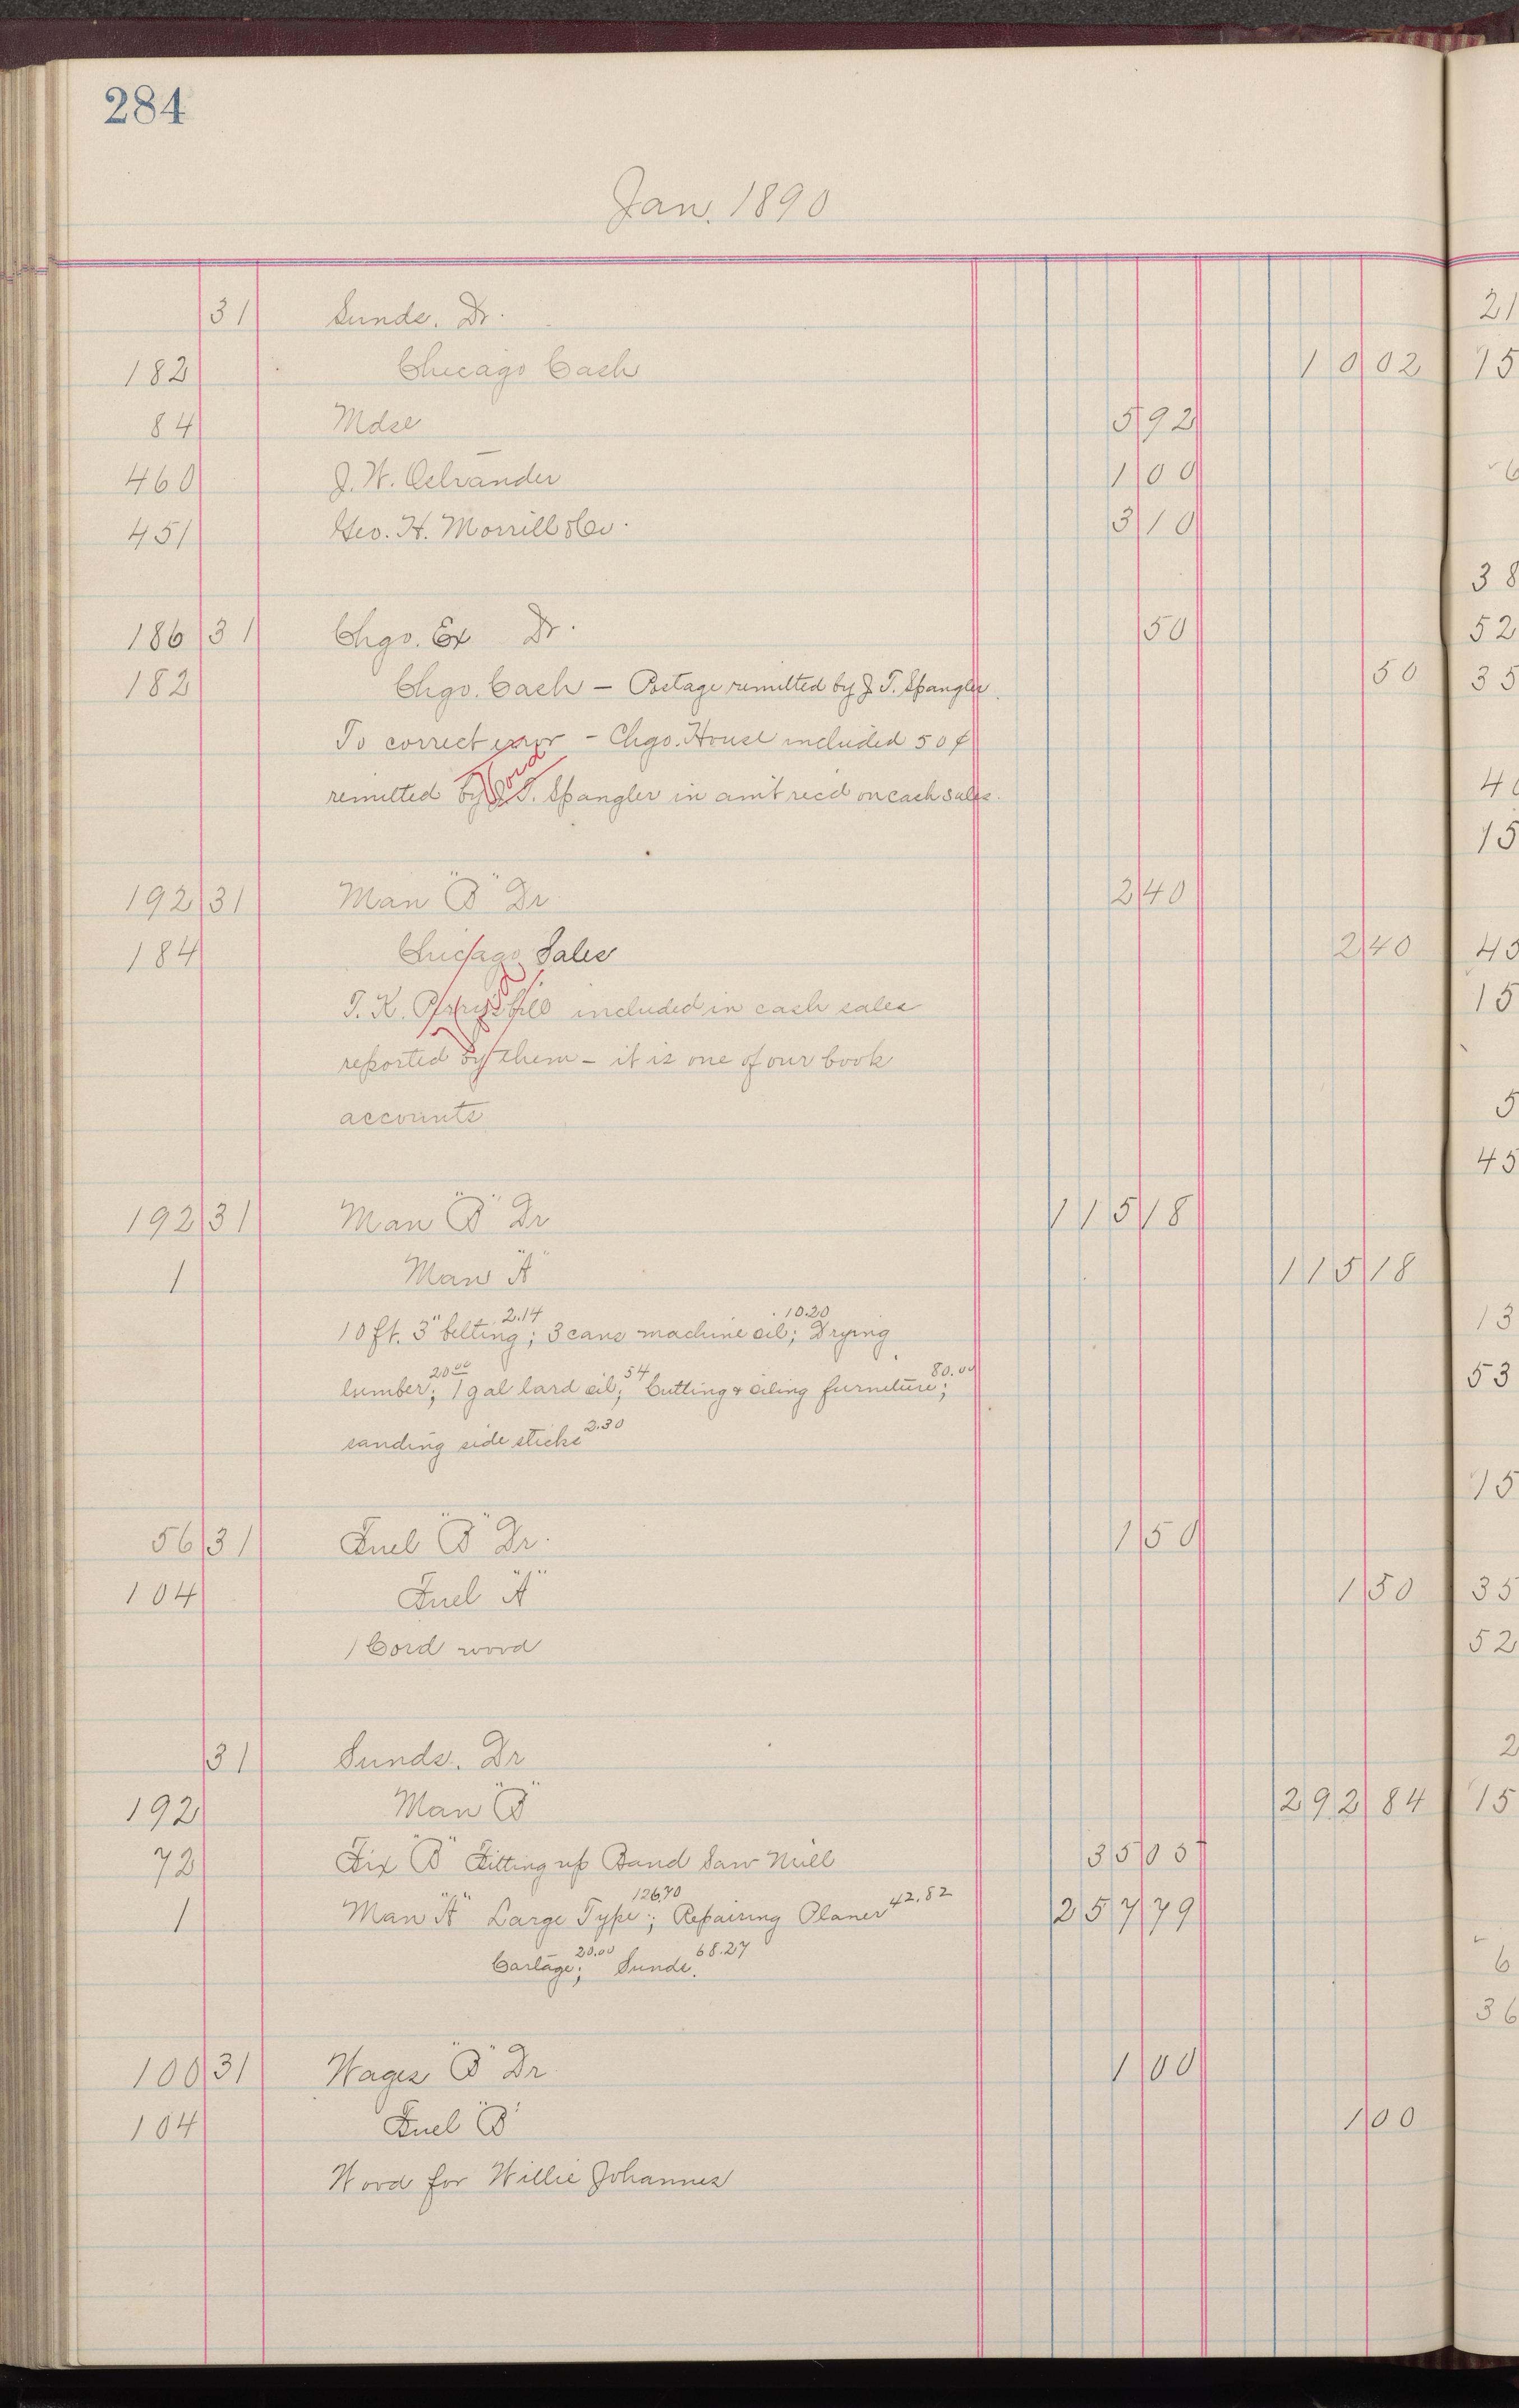 284
Jan. 1890
31 Sunds. Dr.
182 Chicago Cash 10 02
84 Mdse 5 92
460 J. W. Ostrander 1 00
451 Geo. H. Morrill & Co. 3 10
186 31 Chgo. Ex Dr. 50
182 Chgo. Cash – Postage remitted by J. T. Spangler. 50
To correct error – Chgo. House included 50¢
remitted by J. T. Spangler in am't rec'd on cash sales.
Void
192 31 Man "B" Dr. 2 40
184 Chicago Sales 2 40
T. K. bill included in cash sales
reported by them – it is one of our book
accounts
Void
192 31 Man "B" Dr 115 18
1 Man "A" 115 18
10 ft. 3" belting 2.14; 3 cans machine oil 10.20; Drying
lumber 20.00; 1 gal lard oil 54; Cutting & oiling furniture 80.00;
sanding side sticks 2.30
56 31 Fuel "B" Dr. 1 50
104 Fuel "A" 1 50
1 Cord wood
31 Sunds. Dr
192 Man "B" 292 84
72 Fix "B" Fitting up Band Saw Mill 35 05
1 Man "A" Large Type 126.70; Repairing Planer 42.82 257 79
Cartage 20.00; Sunds. 68.27
100 31 Wages "B" Dr 1 00
104 Fuel "B" 1 00
Wood for Willie Johannes
21
15
6
38
52
35
40
15
45
15
5
45
13
53
15
35
52
2
15
6
36